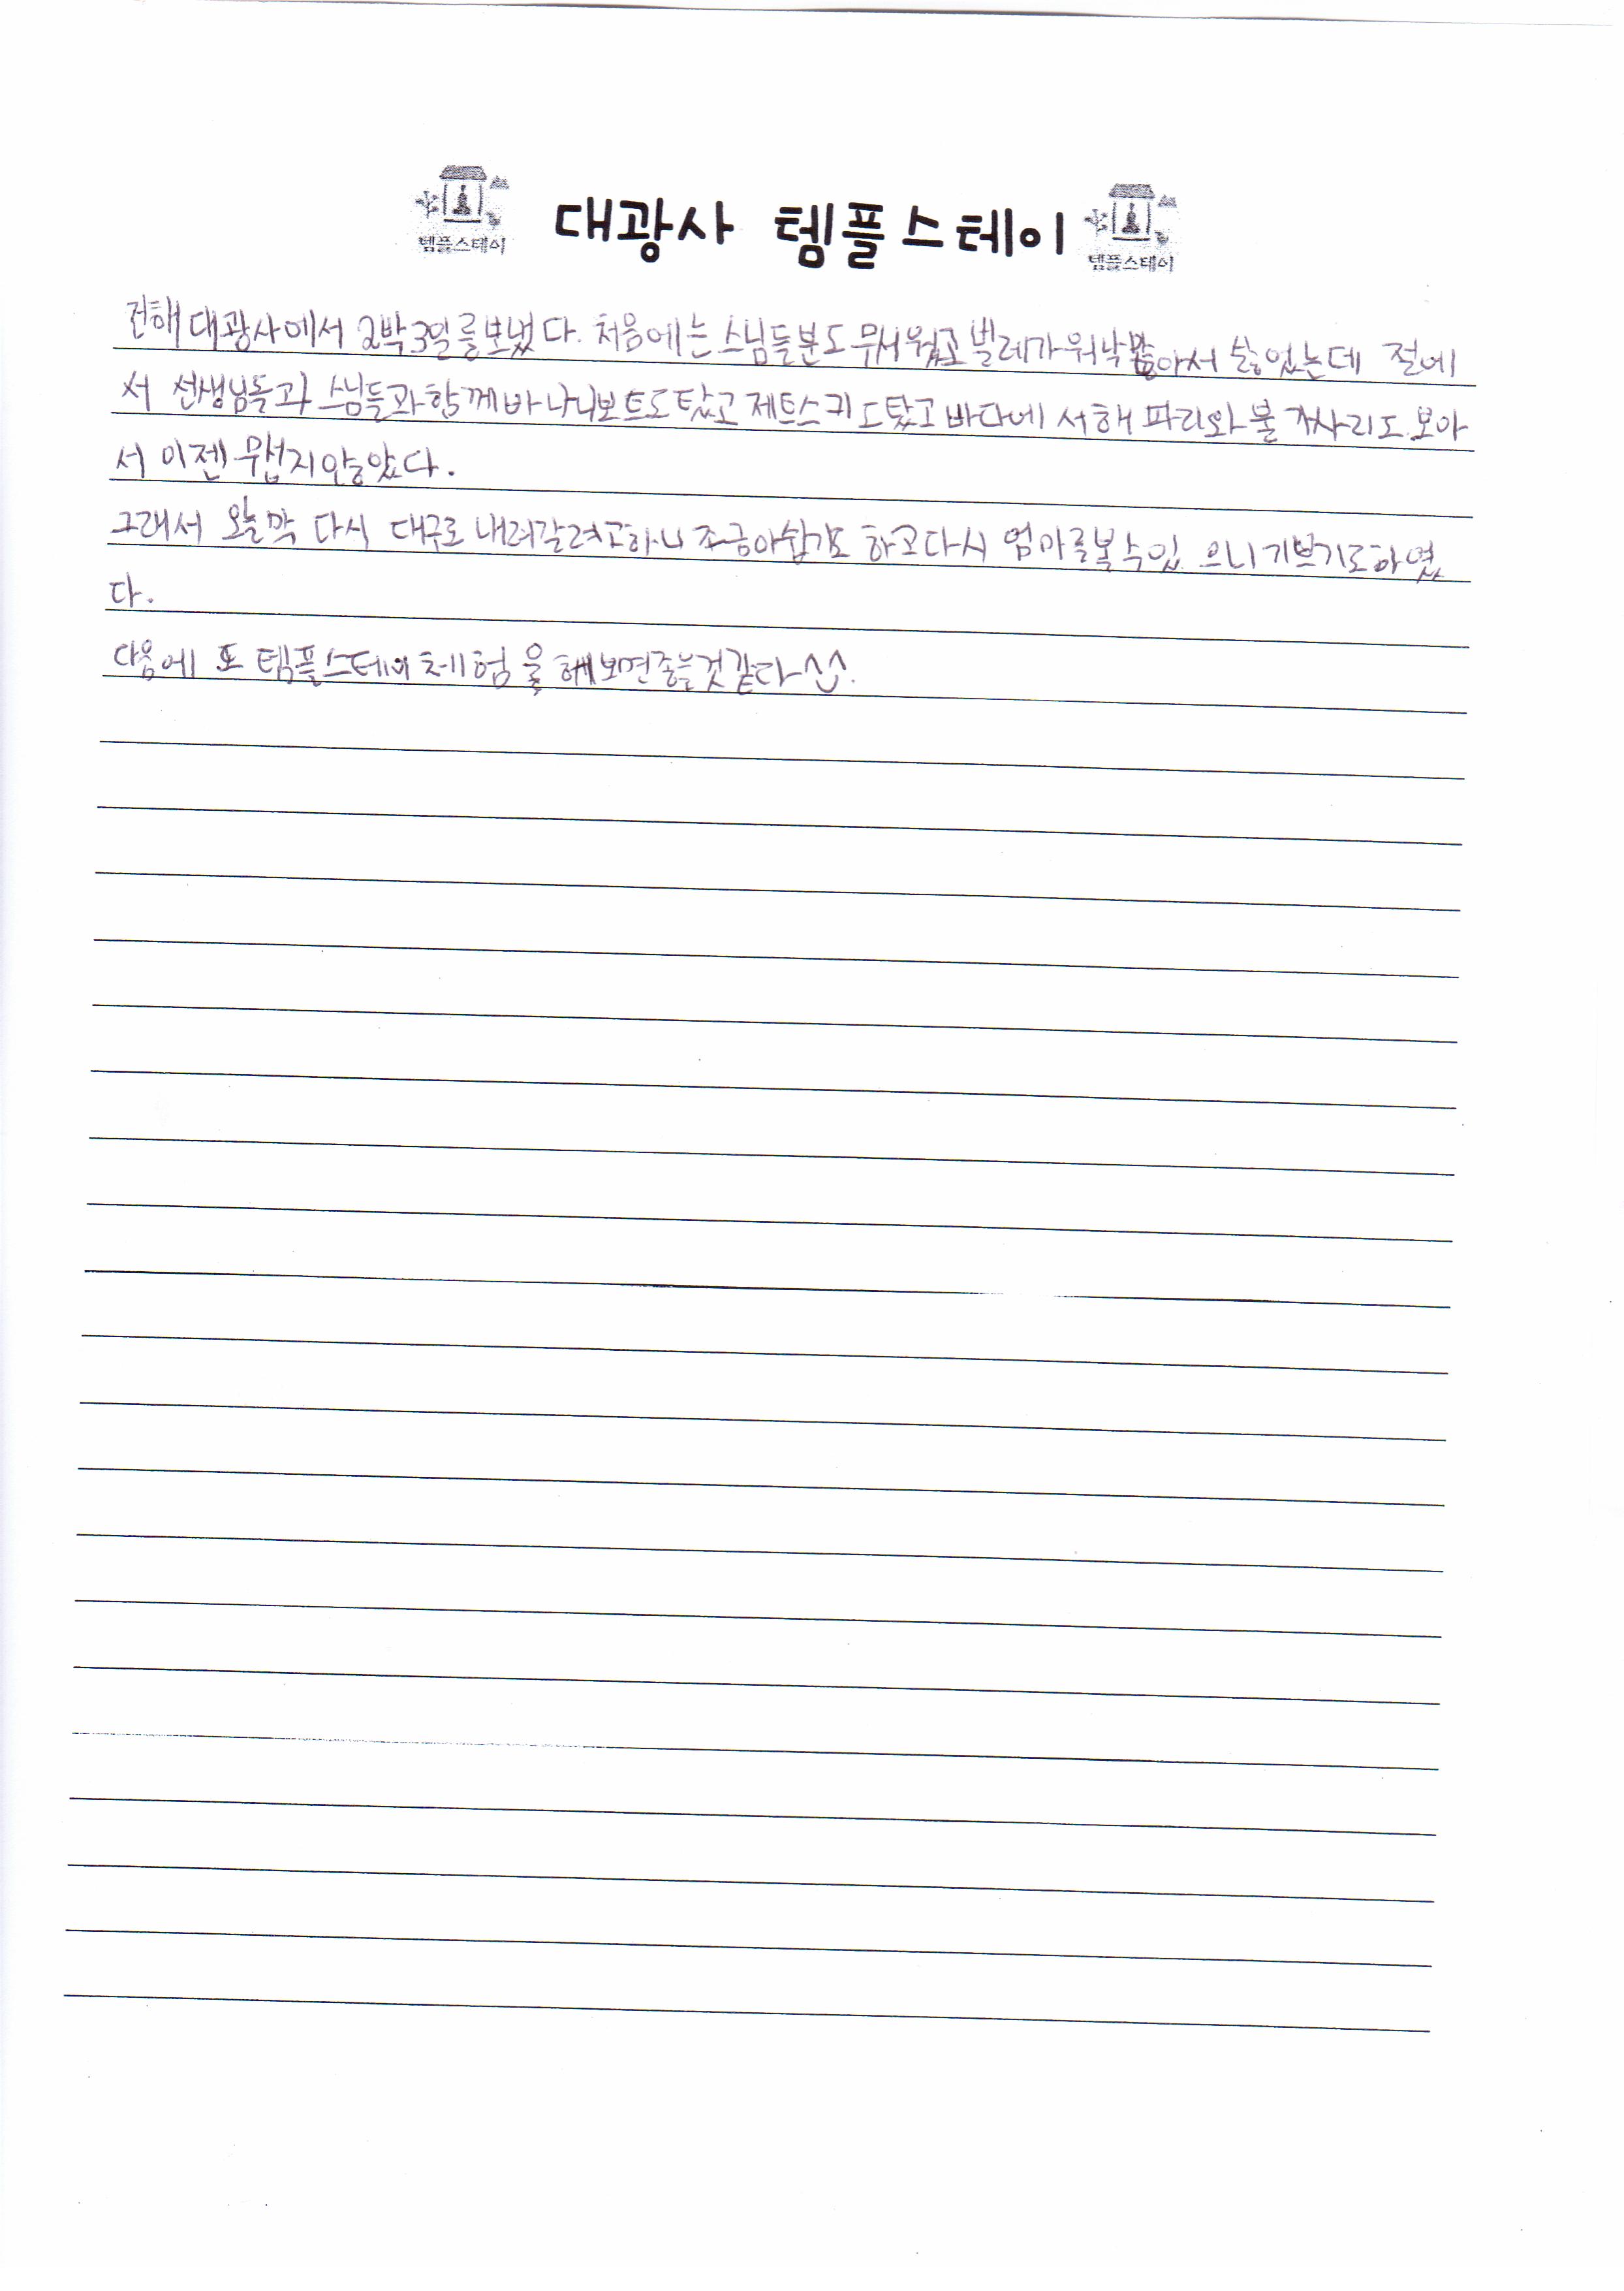 템플스테이 대광사 템플스테이 템플스테이
진해 대광사에서 2박3일를 보냈다. 처음에는 스님들분도 무서웠고 벌레가 워낙 많아서 싫었는데 절에
서 선생님들과 스님들과 함께 바나나보트도 탔고 제트스키도 탔고 바다에서 해파리와 불가사리도 보아
서 이젠 무섭지 않았다.
그래서 오늘 막 다시 대구로 내려갈려고 하니 조금 아쉽기도 하고 다시 엄마를 볼 수 있으니 기쁘기도 하였
다.
다음에 또 템플스테이 체험을 해보면 좋을것 같다^^.